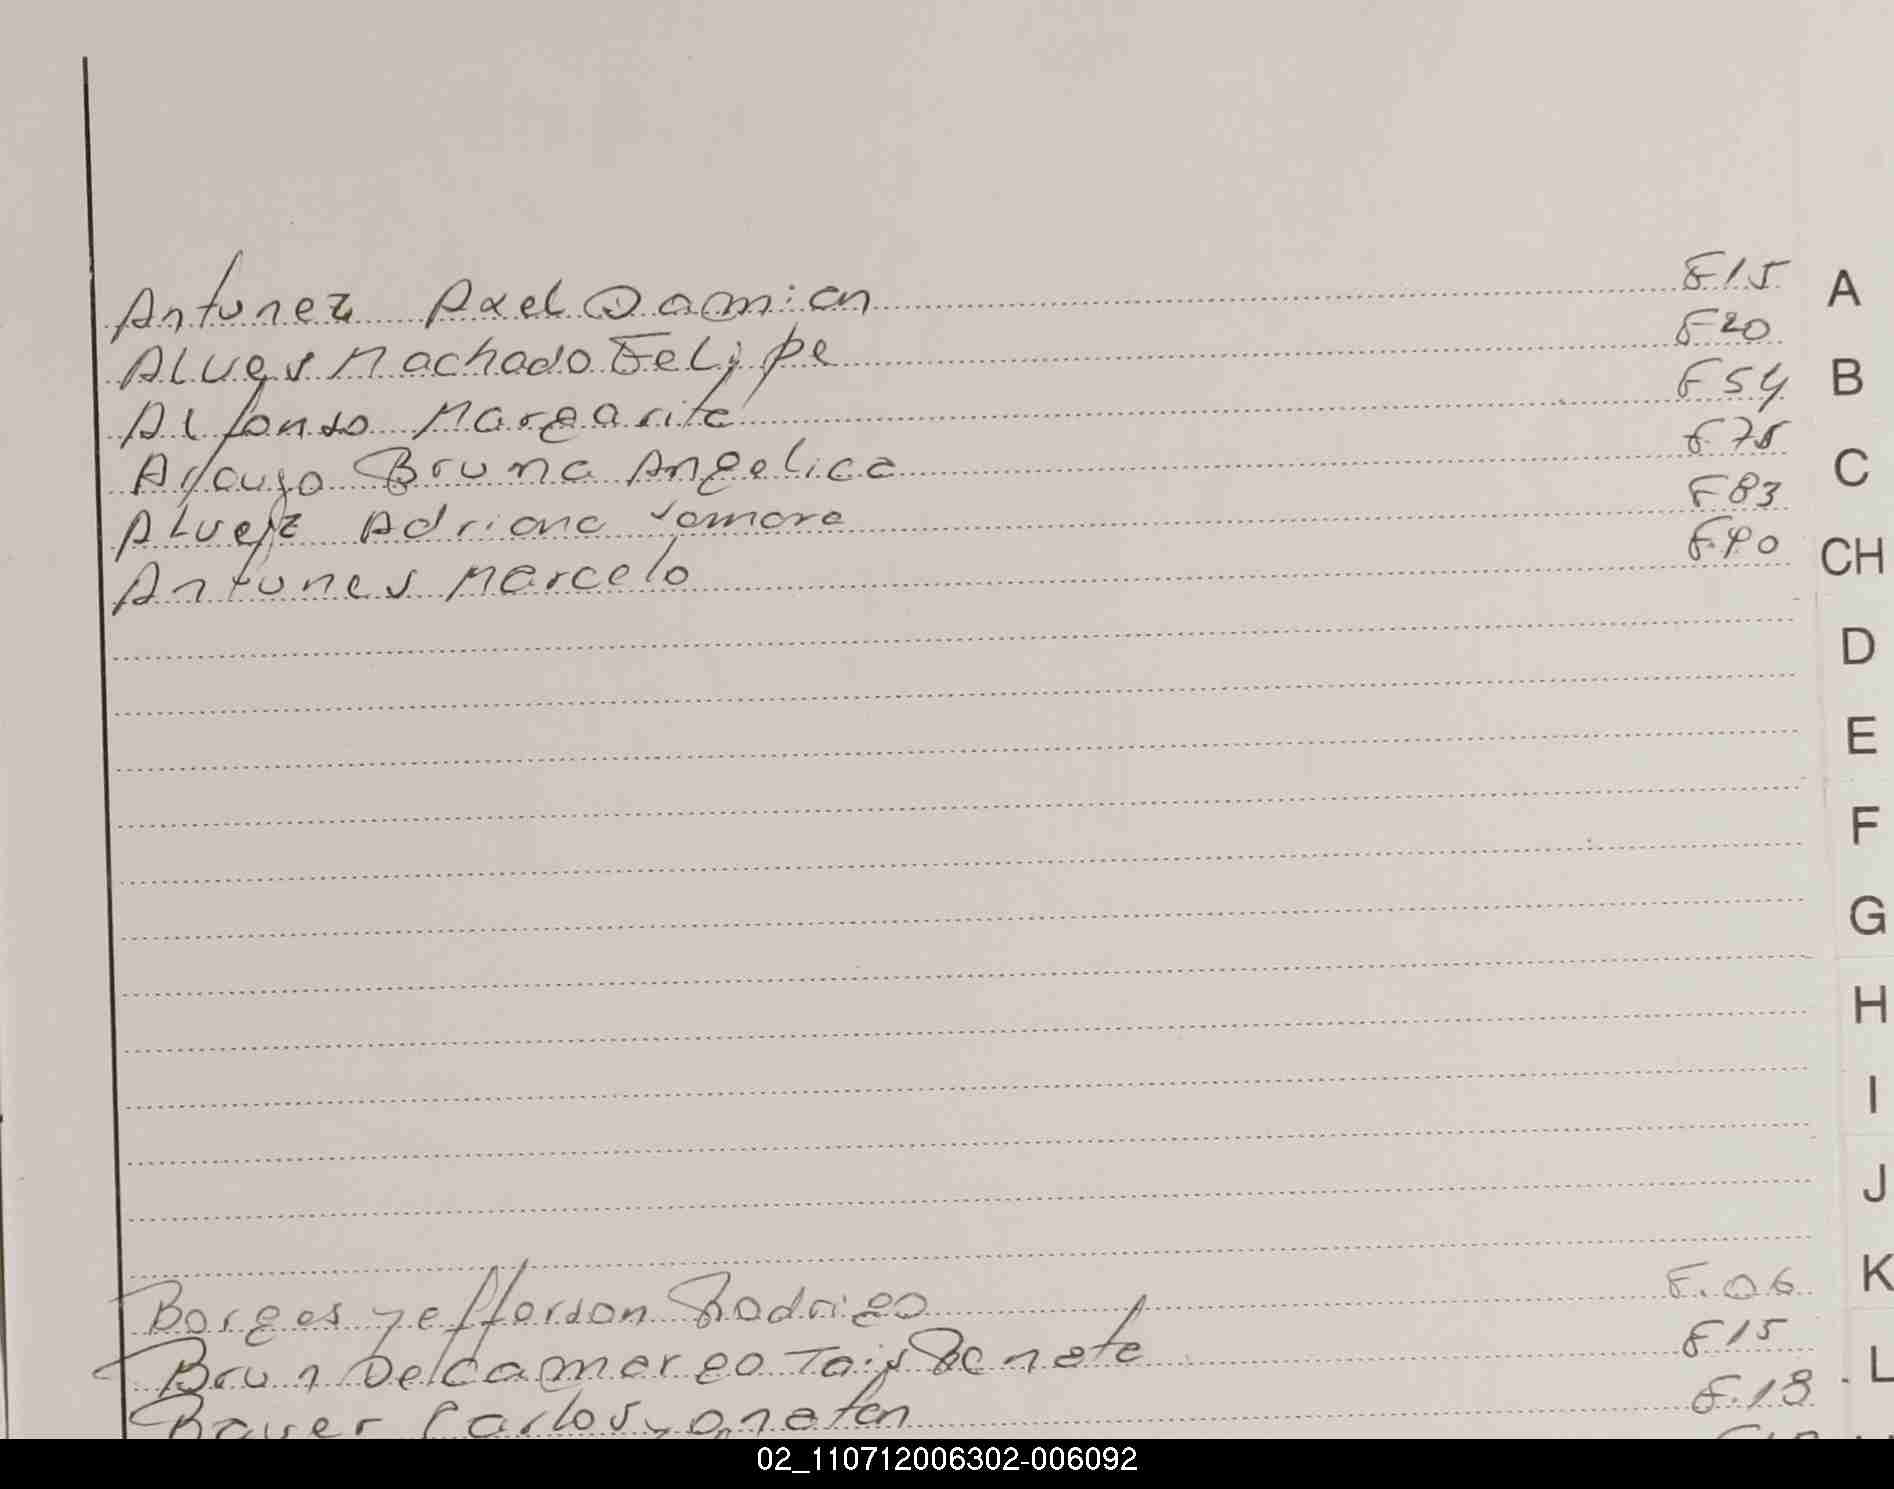 Antunez Axel Damian F15 A
Alves Machado Felipe F20
Alfonso Margarita F54 B
Araujo Bruna Angelica F75 C
Alvez Adriana Yamara F83
Antunes Marcelo F90 CH
D
E
F
G
H
I
J
Borges yefferson Rodrigo F.06 K
Brun De camargo Tais Renata F15 L
Bauer Carlos yonatan F.18
02_110712006302-006092